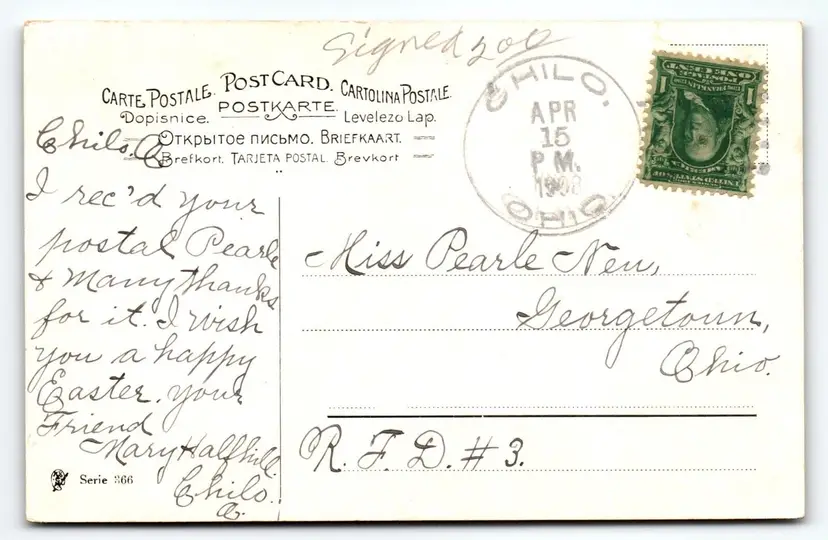 Signed 200
CARTE POSTALE. POST CARD. CARTOLINA POSTALE.
Dopisnice. POSTKARTE. Levelezo Lap.
Открытое письмо. BRIEFKAART.
Brefkort. TARJETA POSTAL. Brevkort
CHILO.
APR
15
P M.
1908
OHIO.
ONE CENT
POSTAGE
1 FRANKLIN 1
UNITED STATES OF
AMERICA
Chilo. O.
I rec'd your
postal Pearle
& Many thanks
for it. I wish
you a happy
Easter. your
Friend
Mary Halfhill.
Chilo.
O.
Miss Pearle Neu,
Georgetown,
Ohio.
R. F. D. # 3.
Serie 366